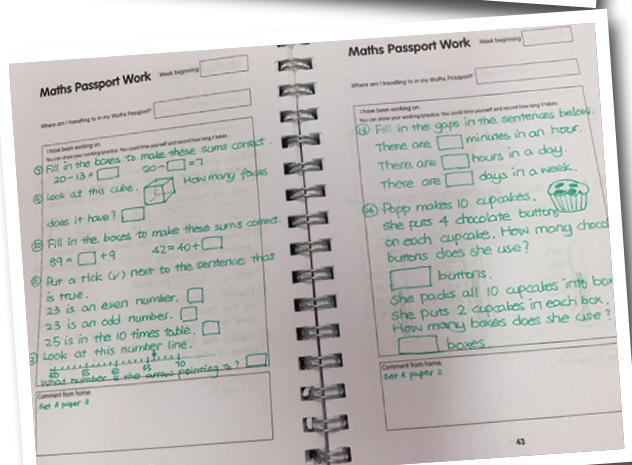 Maths Passport Work
Week beginning
Where am I travelling to in my Maths Passport?
I have been working on:
You can show your working/practice. You could time yourself and record how long it takes.
Fill in the boxes to make these sums correct.
20-13= 20- =7
Look at this cube. How many faces
does it have?
Fill in the boxes to make these sums correct.
89= +9 42=40+
Put a tick (√) next to the sentence that
is true.
23 is an even number.
23 is an odd number.
25 is in the 10 times table.
Look at this number line.
55 60 65 70
What number is the arrow pointing to?
Comment from home:
Set A paper 2
Maths Passport Work
Week beginning
Where am I travelling to in my Maths Passport?
I have been working on:
You can show your working/practice. You could time yourself and record how long it takes.
13 Fill in the gaps in the sentences below.
There are minutes in an hour.
There are hours in a day.
There are days in a week.
14 Popp makes 10 cupcakes.
She puts 4 chocolate buttons
on each cupcake. How many chocol
buttons does she use?
buttons.
She packs all 10 cupcakes into box
She puts 2 cupcakes in each box.
How many boxes does she use?
boxes.
Comment from home:
Set A paper 2
43